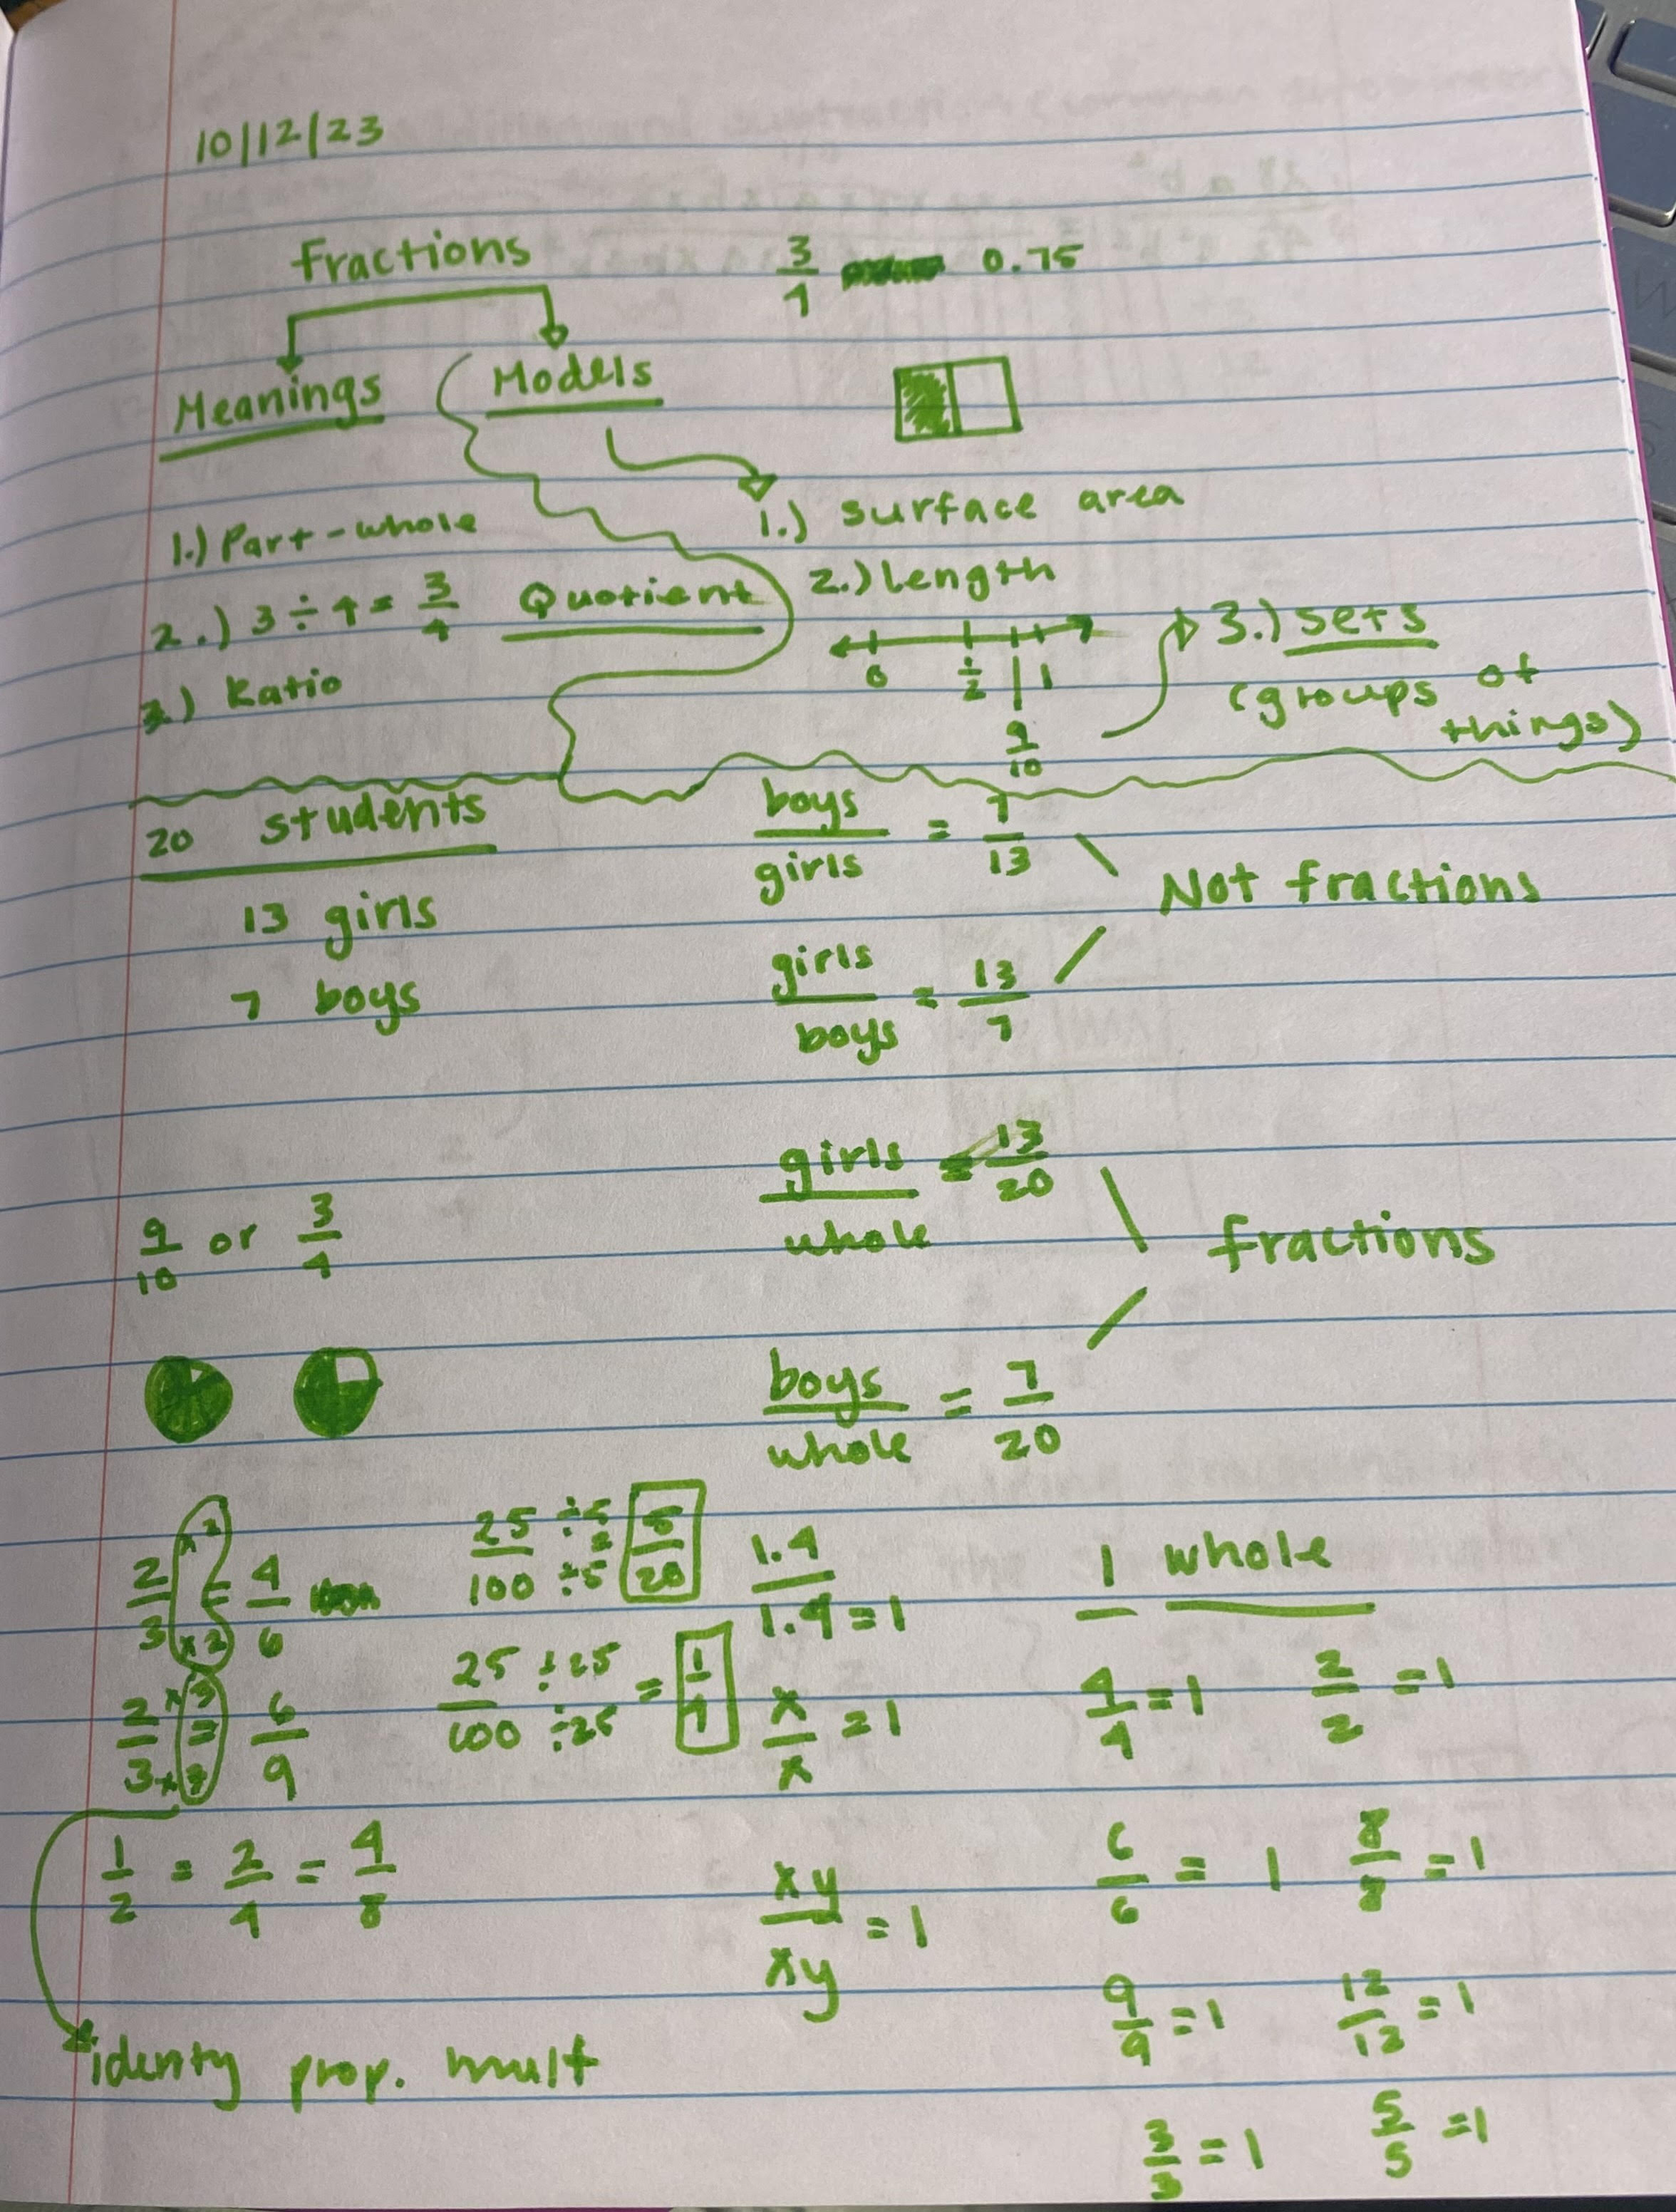 10/12/23
fractions
3/4 0.75
Meanings
Models
1.) Part-whole
2.) 3 ÷ 4 = 3/4 Quotient
3.) Ratio
1.) surface area
2.) length
0 1/2 1
9/10
3.) sets
(groups of
things)
20 students
13 girls
7 boys
boys/girls = 7/13
girls/boys = 13/7
Not fractions
girls/whole = 13/20
boys/whole = 7/20
fractions
9/10 or 3/4
2/3 x2/x2 = 4/6
2/3 x3/x3 = 6/9
1/2 = 2/4 = 4/8
identy prop. mult
25/100 ÷5/÷5 = 5/20
25/100 ÷25/÷25 = 1/4
1.4/1.4 = 1
x/x = 1
xy/xy = 1
1 whole
4/4 = 1 2/2 = 1
6/6 = 1 8/8 = 1
9/9 = 1 12/12 = 1
3/3 = 1 5/5 = 1